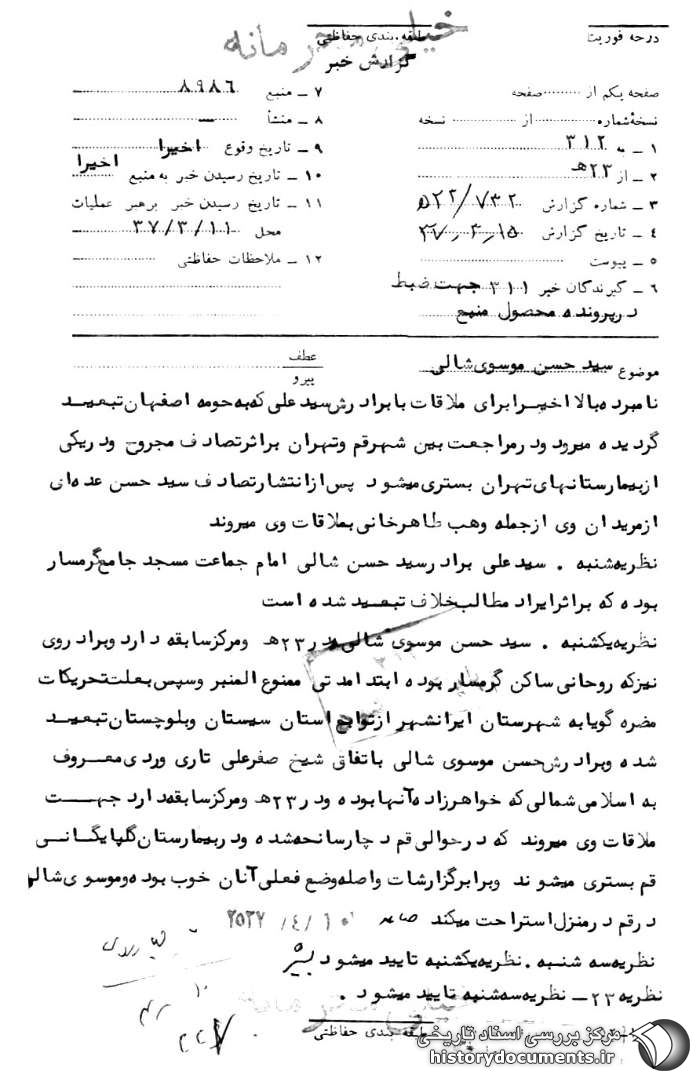 خیلی محرمانه
درجه فوریت
طبقه‌بندی حفاظتی
گزارش خبر
صفحه یکم از ......... صفحه
نسخه شماره ......... از ......... نسخه
۱ – به ۳۱۲
۲ – از ۲۳ هـ
۳ – شماره گزارش ۵۲۲/۷۳۲
۴ – تاریخ گزارش
۵ – پیوست
۶ – گیرندگان خبر ۳۱۱ جهت ضبط
در پرونده محصول منبع
۷ – منبع ۸۹۸۶
۸ – منشأ —
۹ – تاریخ وقوع اخیرا
۱۰ – تاریخ رسیدن خبر به منبع اخیرا
۱۱ – تاریخ رسیدن خبر برهبر عملیات
محل ۳۷/۳/۱۱
۱۲ – ملاحظات حفاظتی
موضوع سید حسن موسوی شالی
عطف
پیرو
نامبرده بالا اخیرا برای ملاقات با برادرش سید علی که به حومه اصفهان تبعید
گردیده میرود و در مراجعت بین شهر قم و تهران بر اثر تصادف مجروح و در یکی
از بیمارستانهای تهران بستری میشود پس از انتشار تصادف سید حسن عده‌ای
از مریدان وی از جمله وهب طاهرخانی بملاقات وی میروند
نظریه شنبه . سید علی برادر سید حسن شالی امام جماعت مسجد جامع گرمسار
بوده که بر اثر ایراد مطالب خلاف تبعید شده است
نظریه یکشنبه . سید حسن موسوی شالی در ۲۳ هـ و مرکز سابقه دارد و برادر وی
نیز که روحانی ساکن گرمسار بوده ابتدا مدتی ممنوع المنبر و سپس بعلت تحریکات
مضره گویا به شهرستان ایرانشهر از توابع استان سیستان و بلوچستان تبعید
شده و برادرش حسن موسوی شالی باتفاق شیخ صفرعلی تاری وردی معروف
به اسلامی شمالی که خواهرزاده آنها بوده و در ۲۳ هـ و مرکز سابقه دارد جهت
ملاقات وی میروند که در حوالی قم دچار سانحه شده و در بیمارستان گلپایگانی
قم بستری میشوند و برابر گزارشات واصله وضع فعلی آنان خوب بوده و موسوی شالی
در قم در منزل استراحت میکند ۲۵۳۷ /۴/ ۱۰
نظریه سه شنبه . نظریه یکشنبه تایید میشود
نظریه ۲۳ – نظریه سه شنبه تایید میشود .
خیلی محرمانه
طبقه بندی حفاظتی
مرکز بررسی اسناد تاریخی
historydocuments.ir